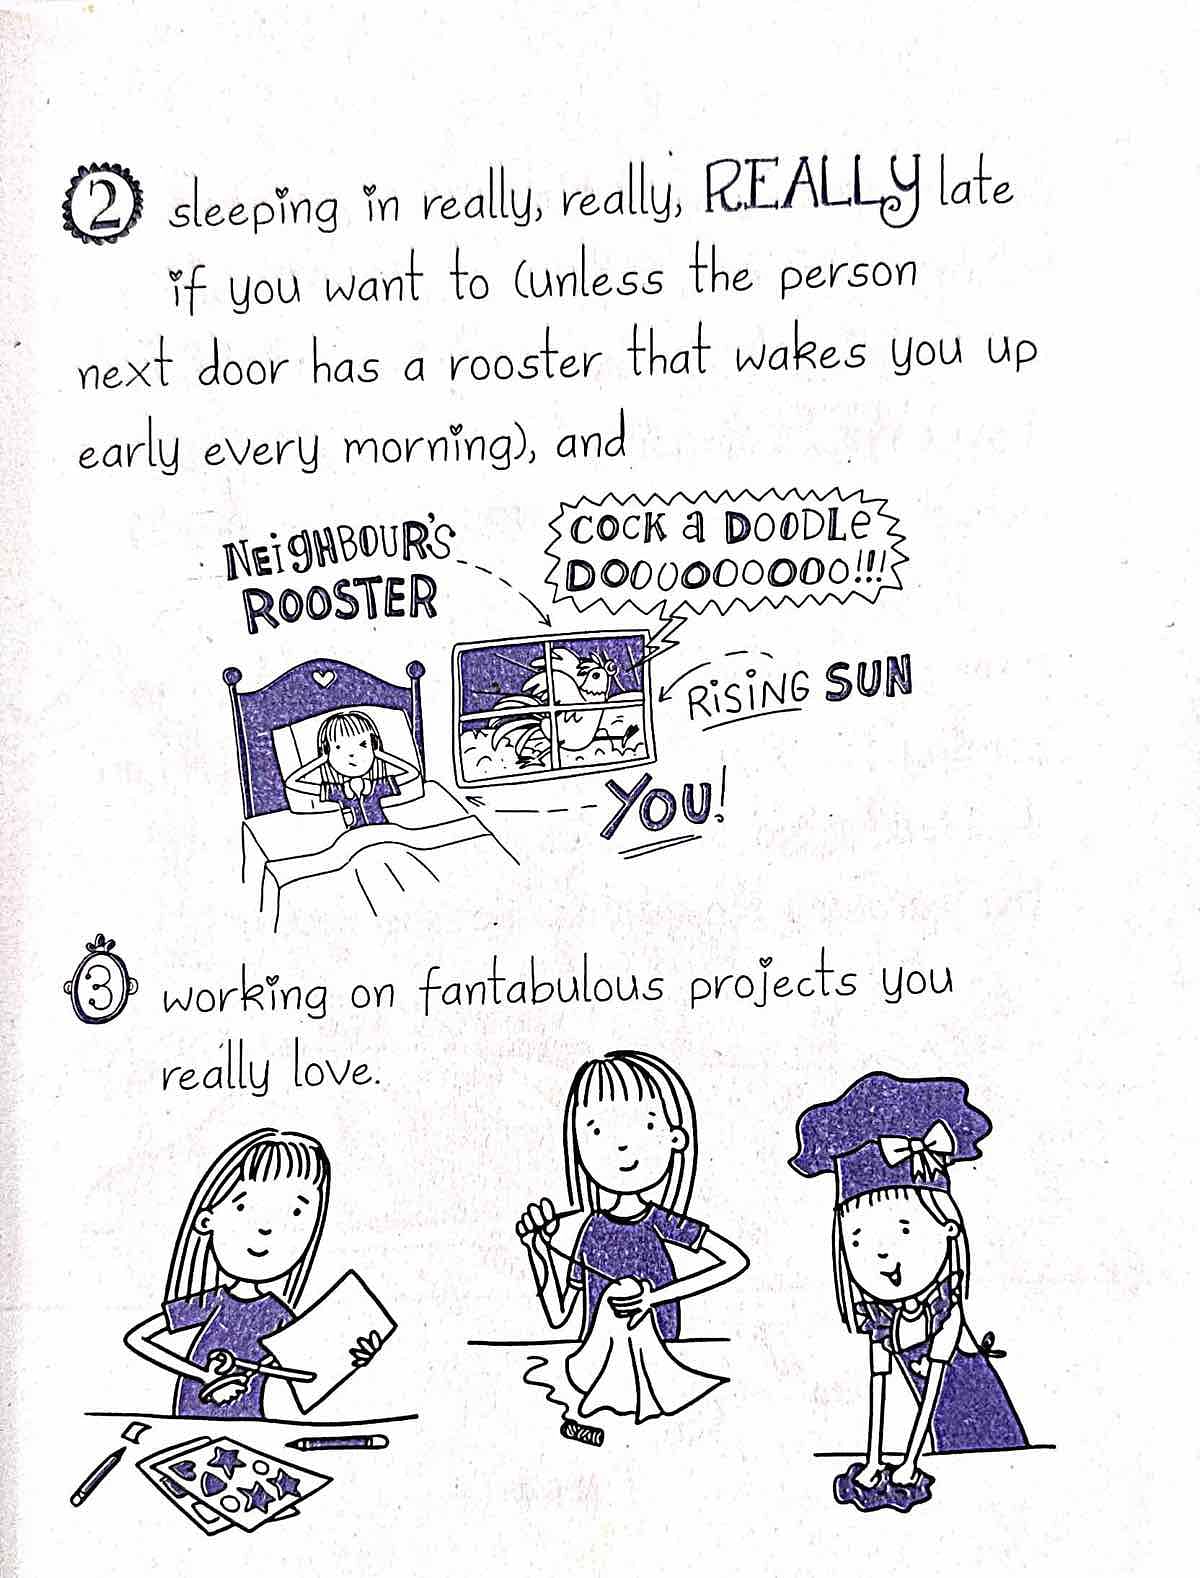 2 sleeping in really, really, REALLY late
if you want to (unless the person
next door has a rooster that wakes you up
early every morning), and
NEiGHBOUR'S
ROOSTER
COCK a DOODLe
DOOOOOOOOO!!!
RiSiNG SUN
YOU!
3 working on fantabulous projects you
really love.